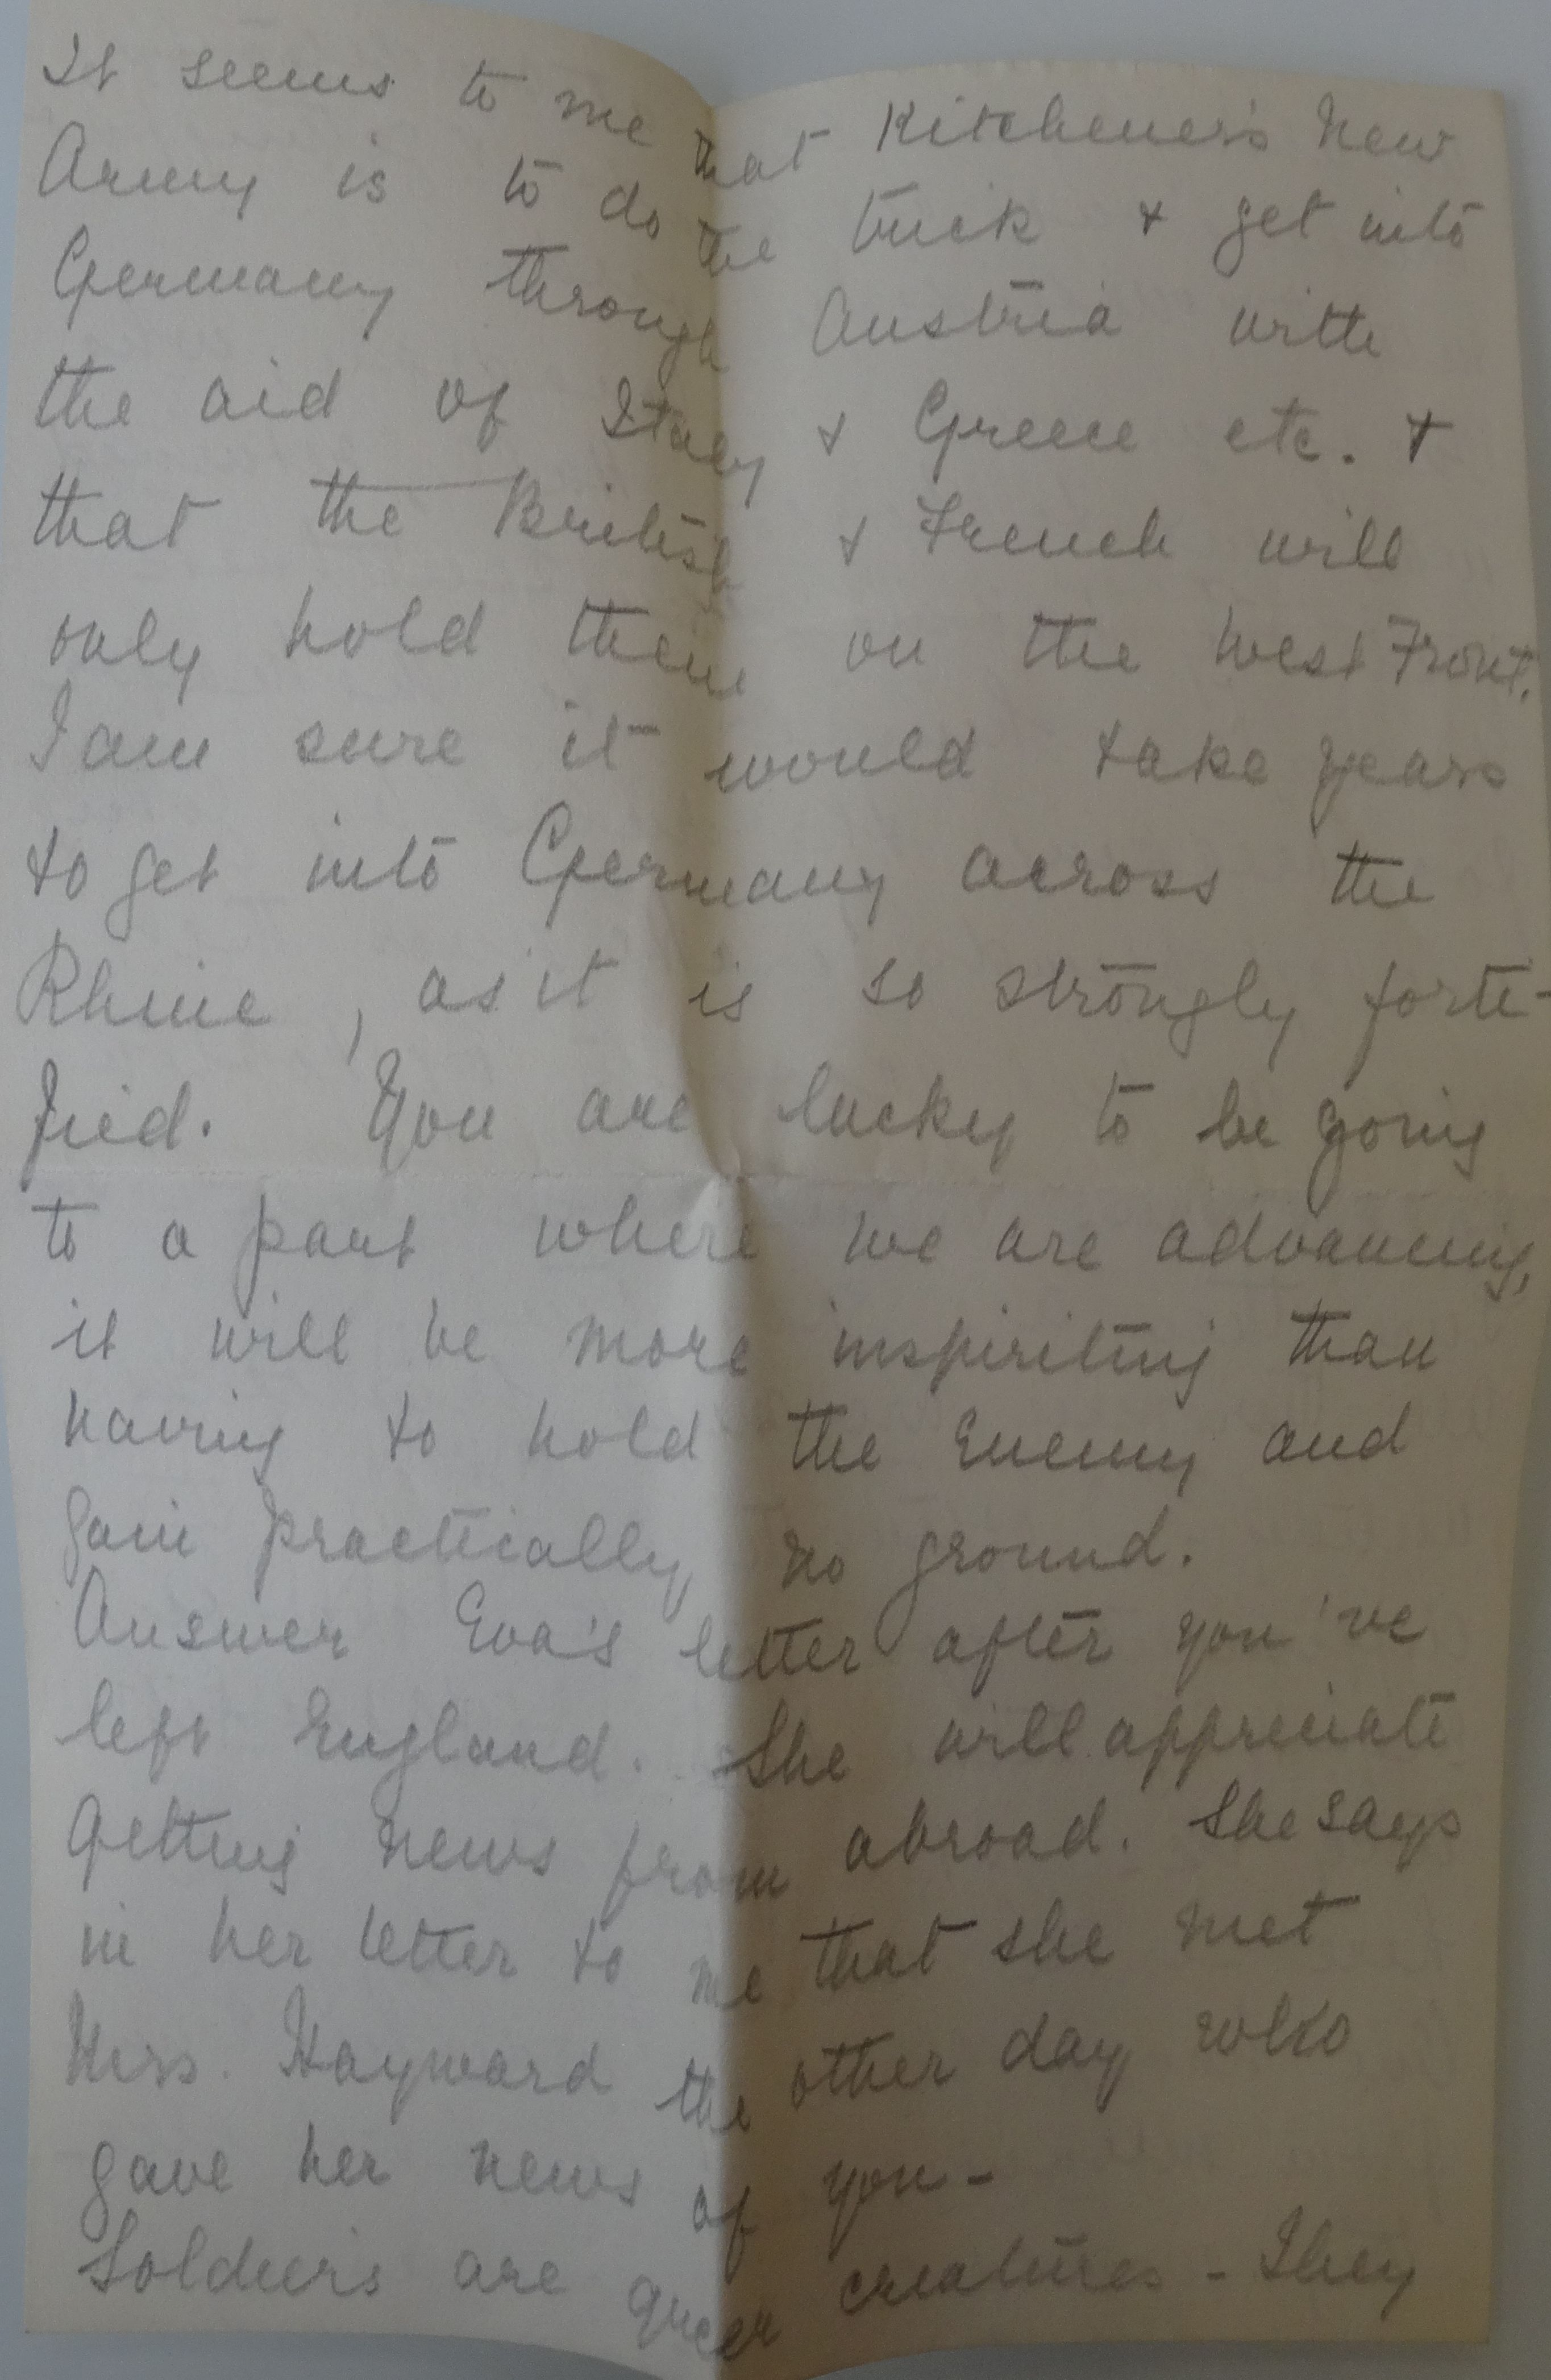 It seems to me that Kitchener's New
Army is to do the trick & get into
Germany through Austria with
the aid of Italy & Greece etc. &
that the British & French will
only hold them on the West Front.
I am sure it would take years
to get into Germany across the
Rhine, as it is so strongly forti-
fied. You are lucky to be going
to a part where we are advancing,
it will be more inspiriting than
having to hold the Enemy and
gain practically no ground.
Answer Eva's letter after you've
left England. She will appreciate
getting news from abroad. She says
in her letter to me that she met
Mrs. Hayward the other day who
gave her news of you -
Soldiers are queer creatures - They